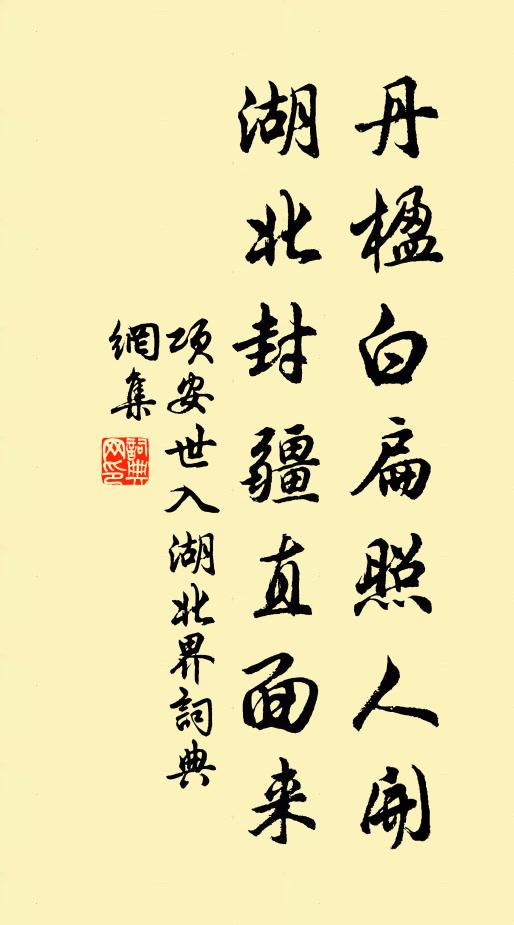 丹楹白扁照人開
湖北封疆直面来
項安世入湖北界詞典
網集
詞典网印